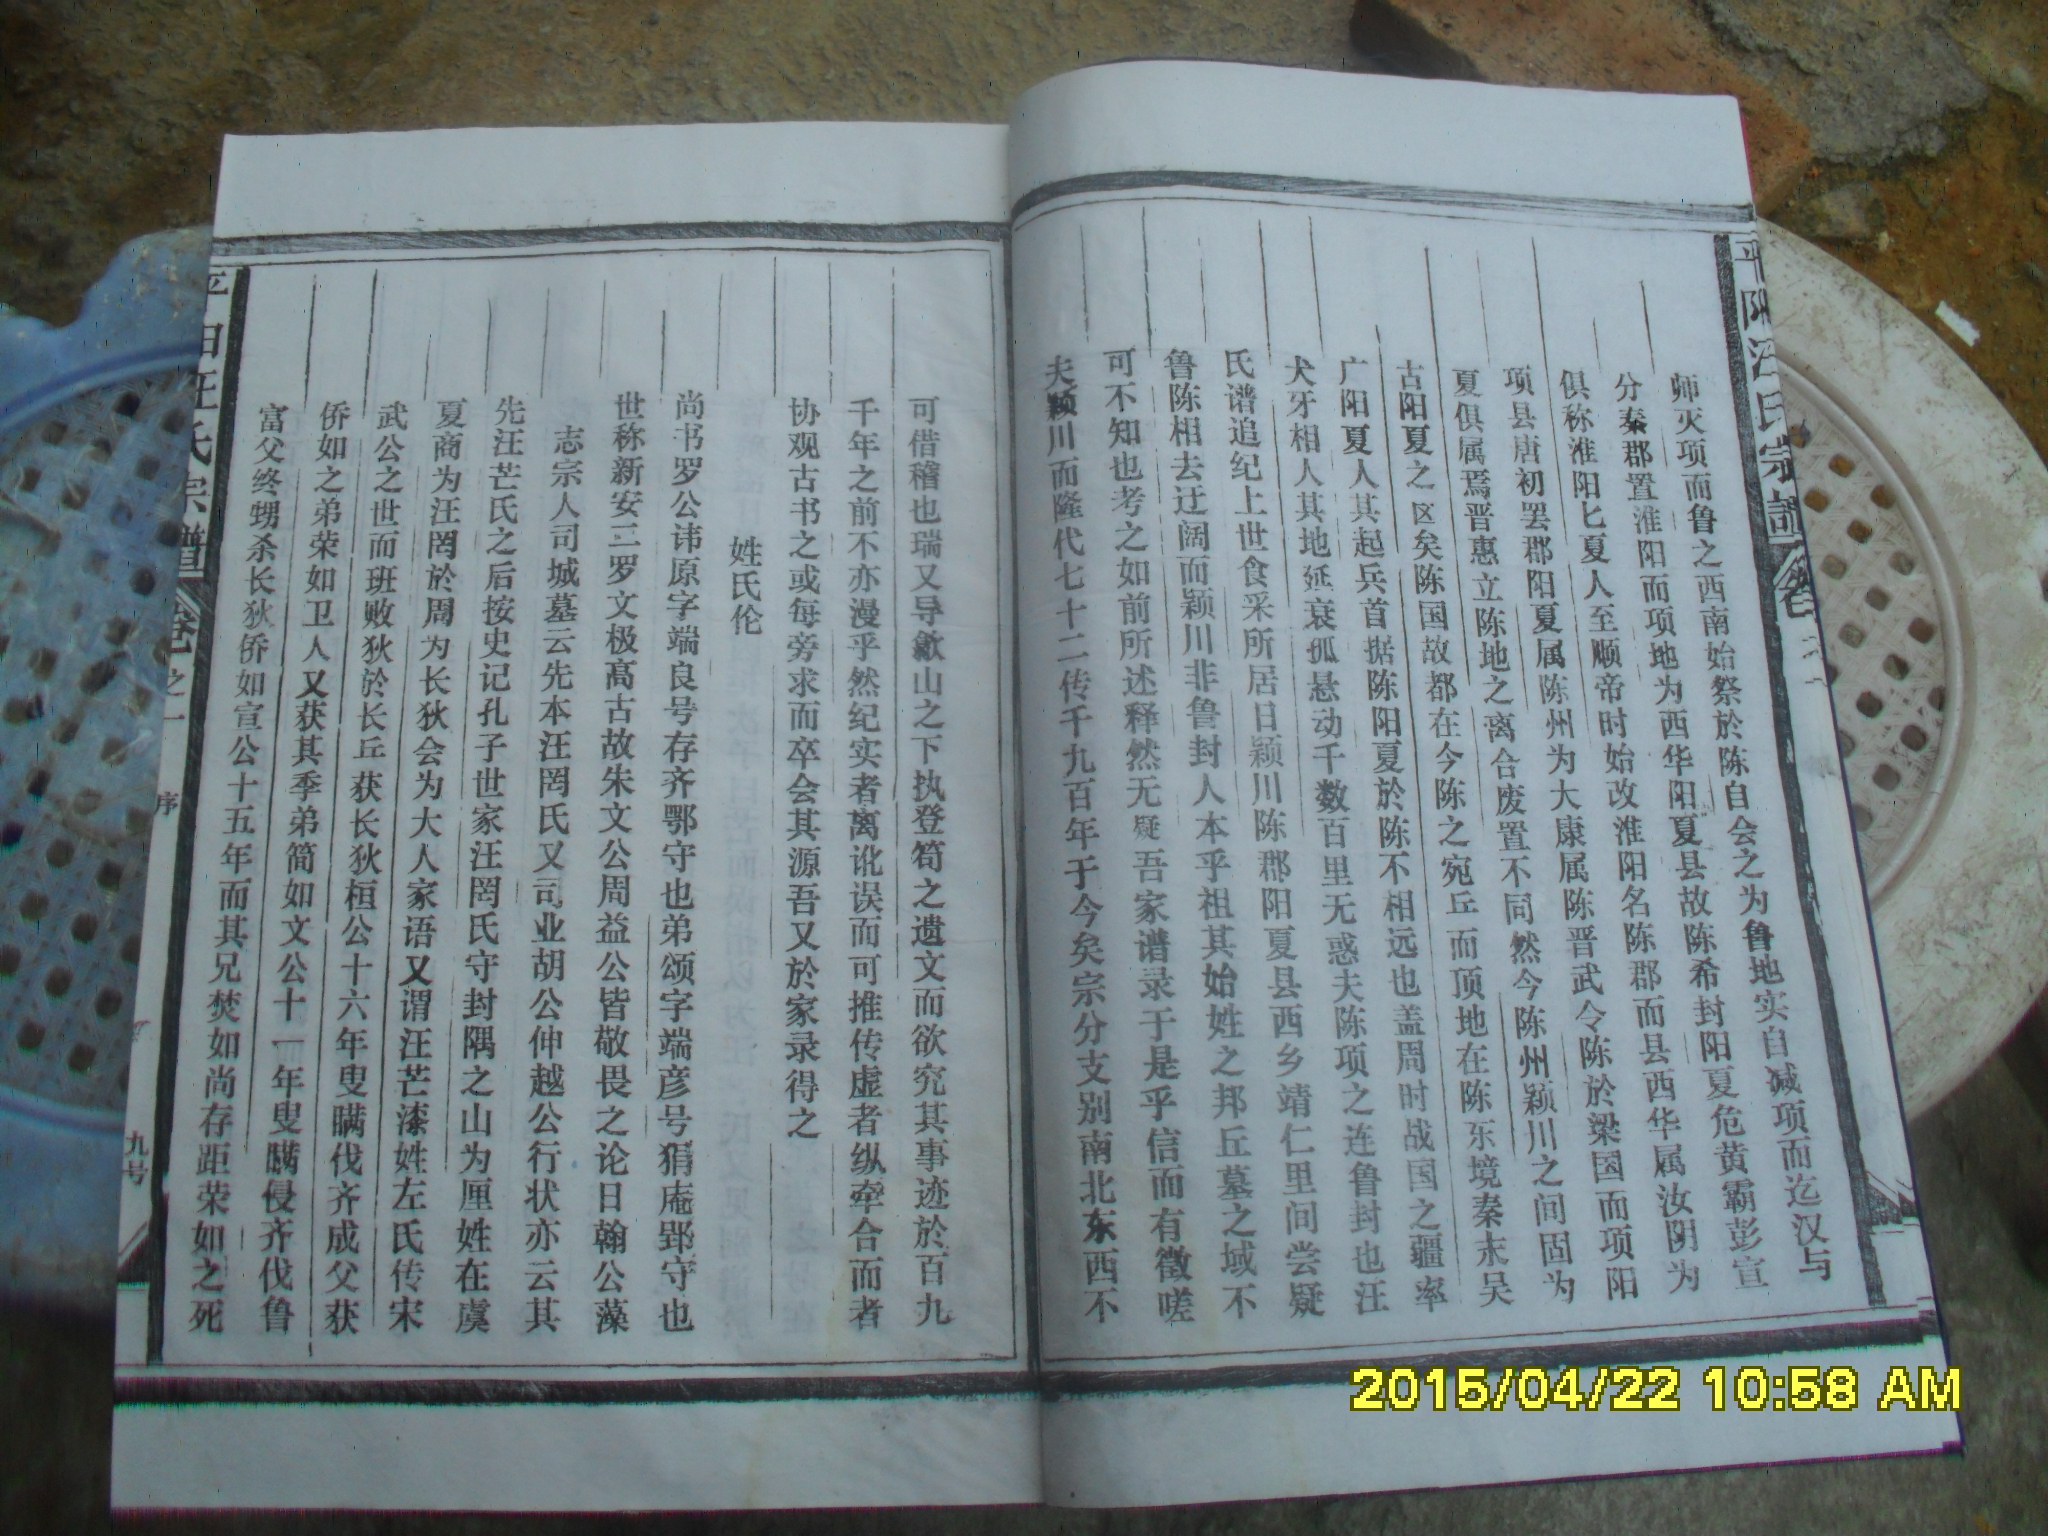 平阳汪氏宗谱 卷之一
师灭项而鲁之西南始祭於陈自会之为鲁地实自减项而迄汉与
分秦郡置淮阳而项地为西华阳夏县故陈希封阳夏危黄霸彭宣
俱称淮阳匕夏人至顺帝时始改淮阳名陈郡而县西华属汝阴为
项县唐初罢郡阳夏属陈州为大康属陈晋武令陈於梁国而项阳
夏俱属焉晋惠立陈地之离合废置不同然今陈州颍川之间固为
古阳夏之区矣陈国故都在今陈之宛丘而顶地在陈东境秦末吴
广阳夏人其起兵首据陈阳夏於陈不相远也盖周时战国之疆率
犬牙相人其地延衰孤悬动千数百里无惑夫陈项之连鲁封也汪
氏谱追纪上世食采所居日颍川陈郡阳夏县西乡靖仁里间尝疑
鲁陈相去迂阔而颍川非鲁封人本乎祖其始姓之邦丘墓之域不
可不知也考之如前所述释然无疑吾家谱录于是乎信而有徵嗟
夫颍川而隆代七十二传千九百年于今矣宗分支别南北东西不
可借稽也瑞又导歙山之下执登筍之遗文而欲究其事迹於百九
千年之前不亦漫乎然纪实者离讹误而可推传虚者纵牵合而者
协观古书之或每旁求而卒会其源吾又於家录得之
姓氏伦
尚书罗公讳原字端良号存齐鄂守也弟颂字端彦号狷庵郢守也
世称新安三罗文极高古故朱文公周益公皆敬畏之论日翰公藻
志宗人司城墓云先本汪罔氏又司业胡公仲越公行状亦云其
先汪芒氏之后按史记孔子世家汪罔氏守封隅之山为厘姓在虞
夏商为汪罔於周为长狄会为大人家语又谓汪芒漆姓左氏传宋
武公之世而班败狄於长丘获长狄桓公十六年叟瞒伐齐成父获
侨如之弟荣如卫人又获其季弟简如文公十一年叟瞒侵齐伐鲁
富父终甥杀长狄侨如宣公十五年而其兄焚如尚存距荣如之死
平阳汪氏宗谱 卷之一 序 九号
2015/04/22 10:58 AM